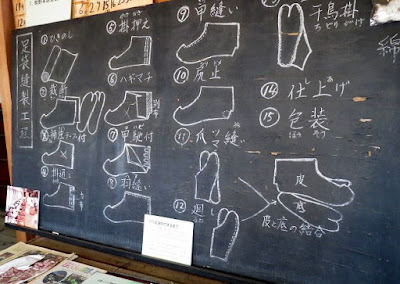 足袋縫製工程
① ひきのし
② 裁断
テープ付
④ 掛通し
⑤ 掛押え
⑥ ハギマチ
⑧ 羽縫い
⑨ 甲縫い
⑩ 尻止
⑪ 爪縫い
ツマ
⑫ 廻し
千鳥掛
ちどりがけ
⑭ 仕上げ
⑮ 包装
ほうそう
皮
底
皮と底の結合
綿